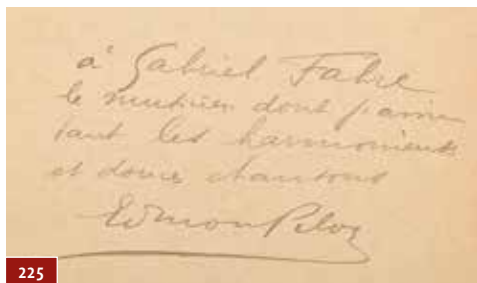 à Gabriel Fabre
le musicien dont j'aime
tant les harmonieuses
et douces chansons
Edmon Piloz
225